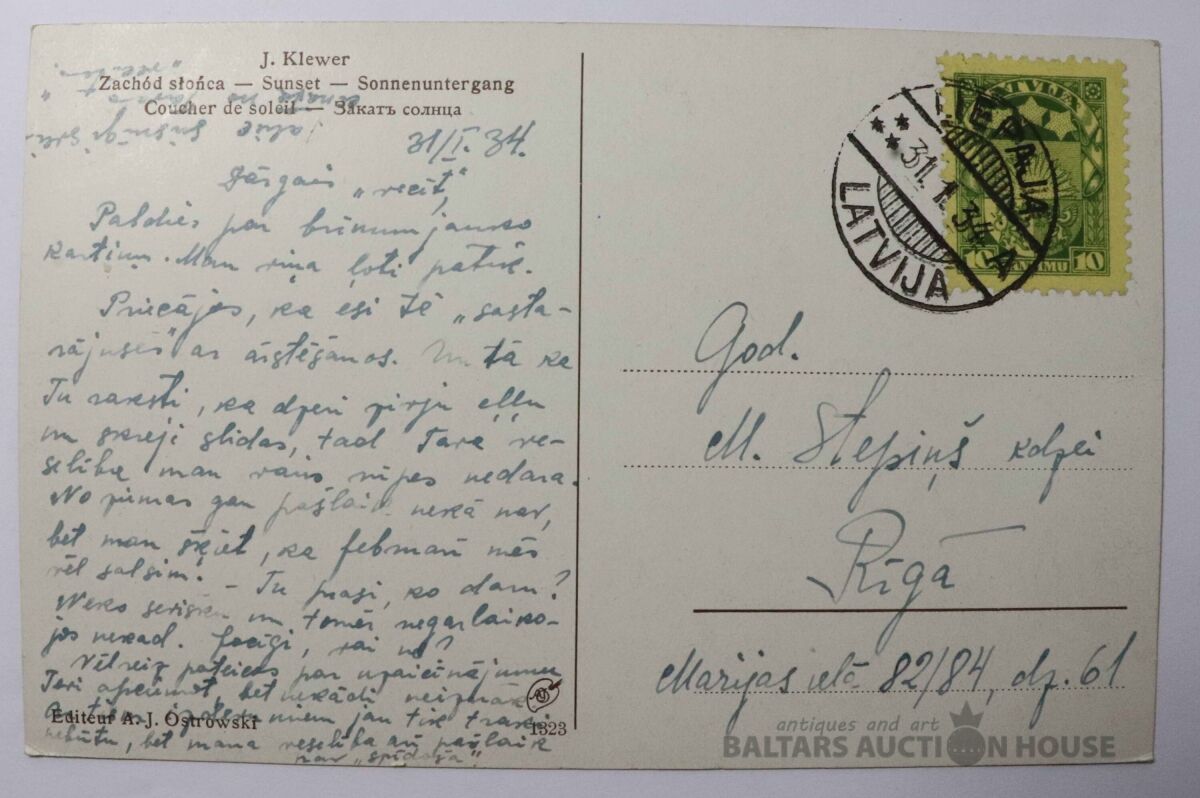 J. Klewer
Zachód słońca — Sunset — Sonnenuntergang
Coucher de soleil — Закатъ солнца
31/I. 34.
Dārgais „vecīt",
Paldies par brīnum jauko
kartiņu. Man viņa ļoti patīk.
Priecājos, ka esi tē „sasta-
rējusēs" ar ārstēšanos. Un tā ka
Tu raksti, ka dzeri zivju eļļu
un skreji slidas, tad Tava ve-
selība man vairs rūpes nedara.
No ziemas gan pašlaik nekā nav,
bet man šķiet, ka februarī mēs
vēl salsim. – Tu prasi, ko daru?
Neko un tomēr negarlaiko-
jos nekad. Jocīgi, vai ne?
Vēlreiz pateicos par uzaicinājumu
Tevi apciemot, bet nekādi neiznāk
jau tik traki
nebūtu, bet mana veselība arī pašlaik
nav „spīdoša".
Editeur A. J. Ostrowski
1323
LIEPAJA
31.1.34.
A
LATVIJA
LATVIJA
10 SANTIMU 10
God.
M. Stepiņš kdzei
Rīgā
Marijas ielā 82/84, dz. 61
antiques and art
BALTARS AUCTION HOUSE